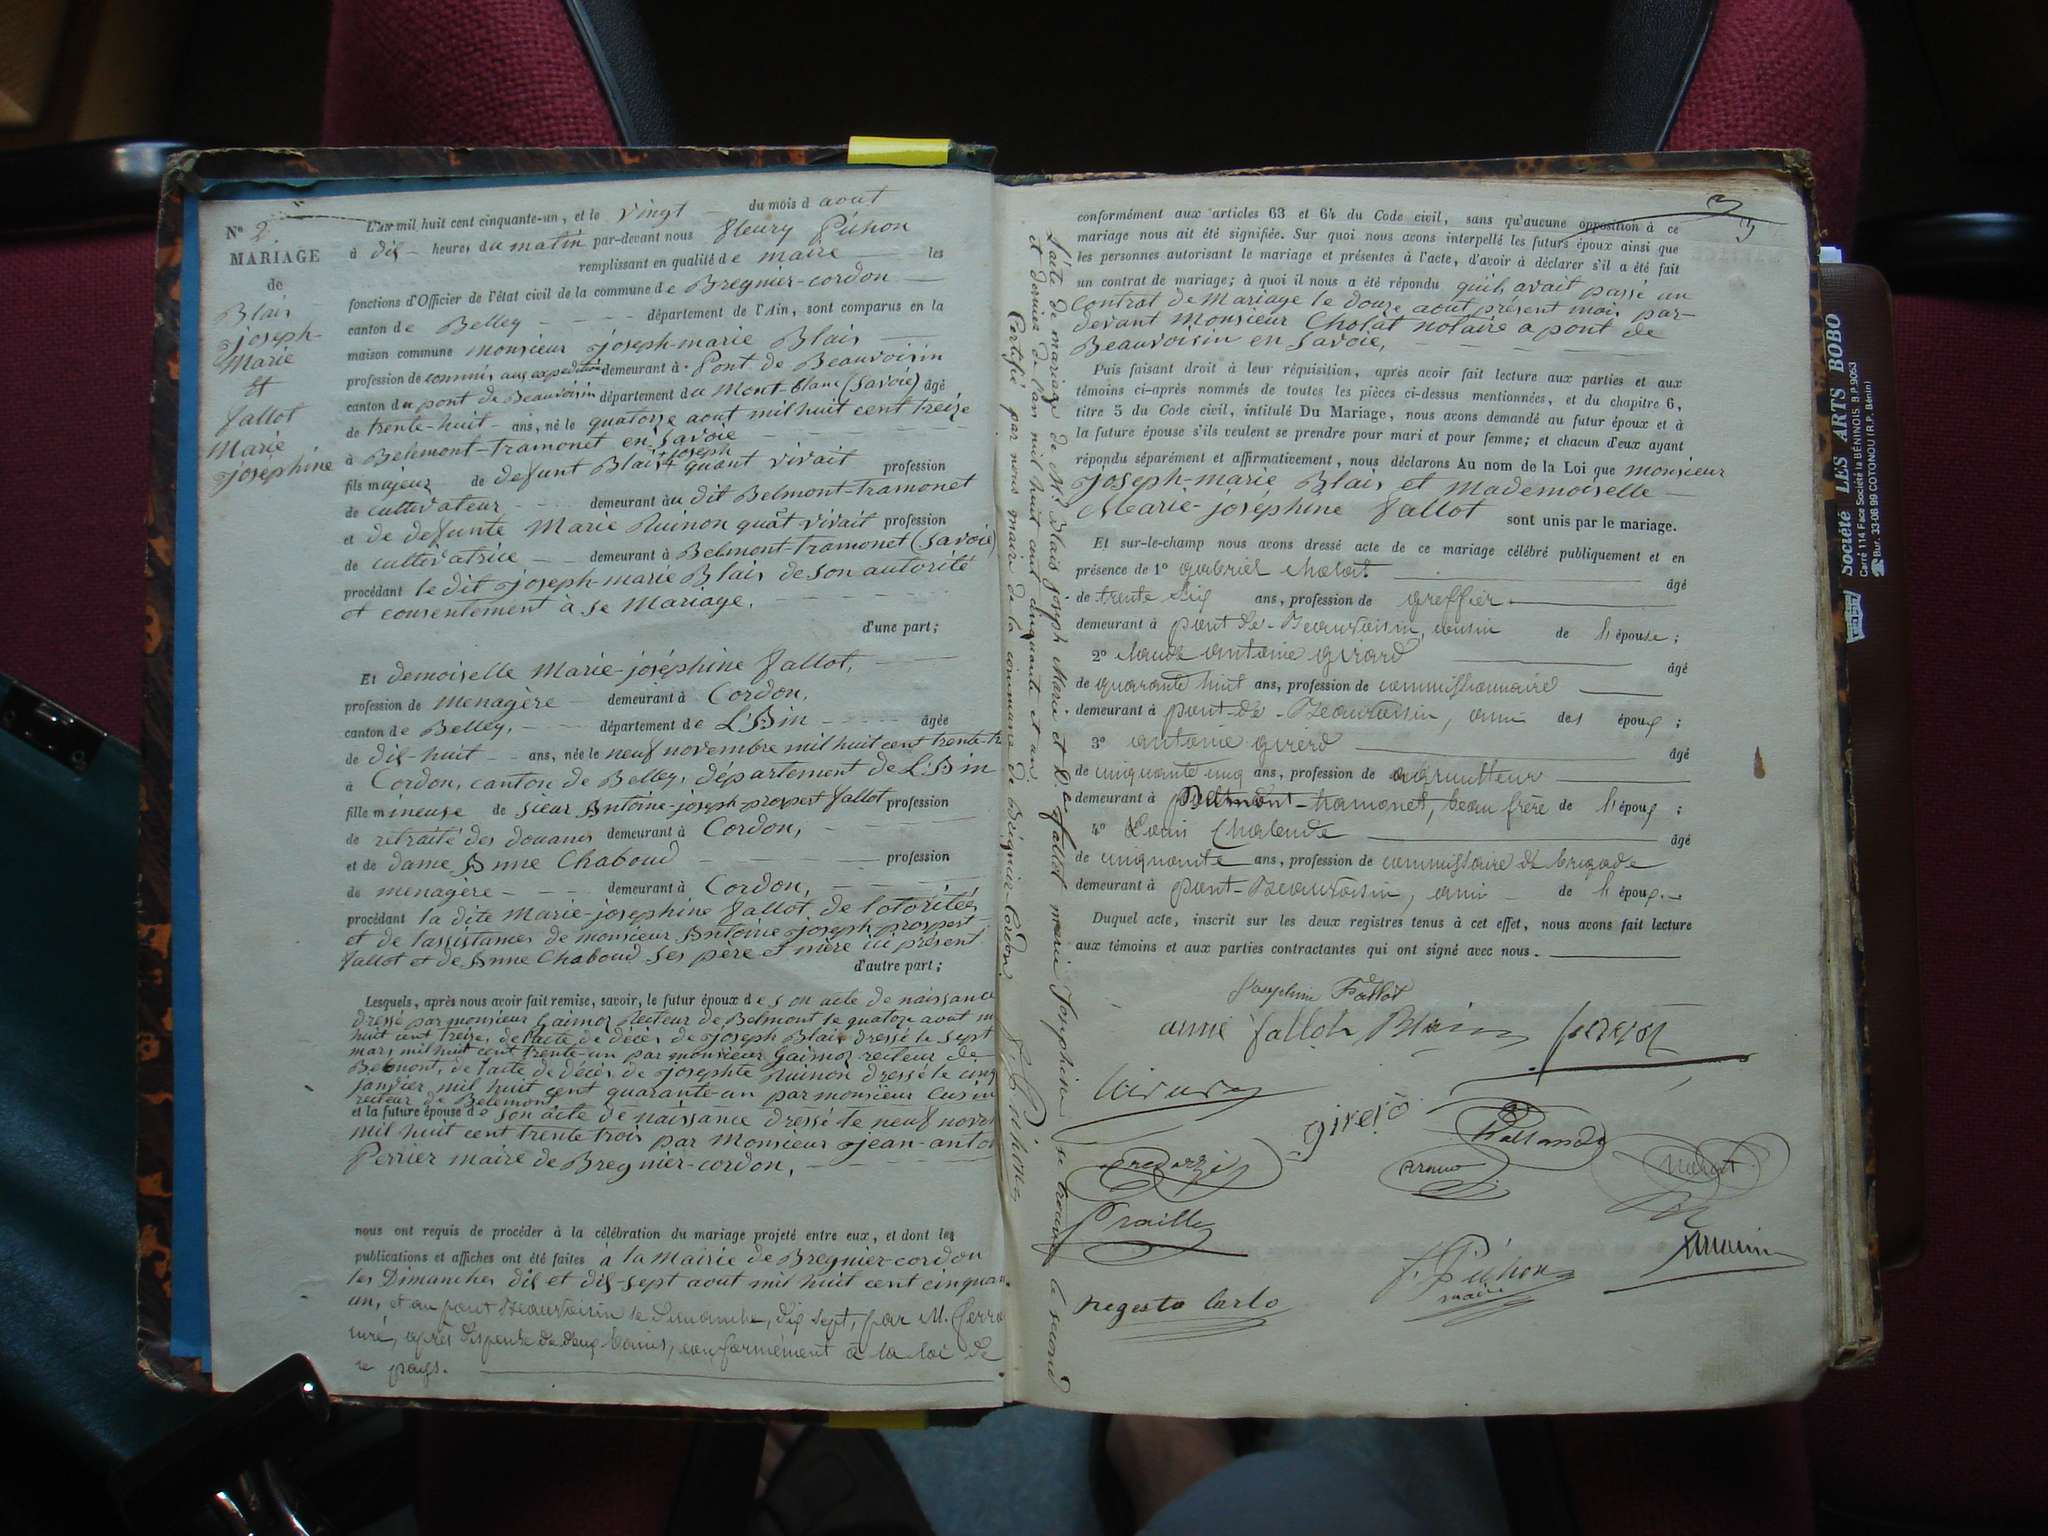 Nº 2
MARIAGE
de
Blais
joseph-
Marie
et
fallot
Marie
joséphine
L'an mil huit cent cinquante-un, et le vingt du mois d aout
à dix heures du matin par-devant nous fleury
remplissant en qualité de maire les
fonctions d'Officier de l'état civil de la commune de Bregnier-cordon
canton de Belley département de l'Ain, sont comparus en la
maison commune monsieur joseph-marie Blais
profession de commis aux expeditions demeurant à Pont de Beauvoisin
canton du pont de Beauvoisin département du Mont-blanc (Savoie) âgé
de trente-huit ans, né le quatorze aout mil huit cent treize
à Belemont-tramonet en Savoie
fils majeur de defunt Blais joseph quant vivait profession
de cultivateur demeurant au dit Belmont-tramonet
et de defunte Marie Ruinon quāt vivait profession
de cultivatrice demeurant à Belmont-tramonet (Savoie)
procédant le dit joseph-marie Blais de son autorité
et consentement à se Mariage.
d'une part;
Et demoiselle Marie-joséphine fallot,
profession de menagère demeurant à Cordon,
canton de Belley, département de L'Ain âgée
de dix-huit ans, née le neuf novembre mil huit cent trente-tr
à Cordon, canton de Belley, département de L'Ain
fille mineuse de sieur Antoine-joseph-prospert fallot profession
de retraité des douanes demeurant à Cordon,
et de dame Anne Chaboud profession
de menagère demeurant à Cordon,
procédant la dite Marie-josephine fallot de lotorités
et de lassistames de monsieur Antoine joseph prospert
fallot et de Anne Chaboud ses père et mère ici présent
d'autre part;
Lesquels, après nous avoir fait remise, savoir, le futur époux de son acte de naissance
dressé par monsieur Gaimoz recteur de Belmont le quatorze aout m
huit cent treize, de l'acte de décès de joseph Blais dressé le sept
mars mil huit cent trente-un par monsieur Gaimoz recteur de
Belmont, de l'acte de décès de josephte Ruinon dressé le cinq
janvier mil huit cent quarante-un par monsieur Cusin
recteur de Belemont
et la future épouse de son acte de naissance dressé le neuf nove
mil huit cent trente trois par Monsieur jean-anto
Perrier maire de Bregnier-cordon,
nous ont requis de procéder à la célébration du mariage projeté entre eux, et dont les
publications et affiches ont été faites à la Mairie de Bregnier-cordon
les Dimanches dix et dix-sept aout mil huit cent cinquan
un, et au pont Beauvoisin le dimanche, dix sept, par M. Perra
curé, après dispense de deux bans, conformément à la loi de
ce pays.
L'acte de mariage de Mr Blais joseph Marie et dlle fallot marie Josephine se trouve le second
et dernier de l'an mil huit cent cinquante et un
Certifié par nous maire de la commune de Brégnier-Cordon
3
conformément aux articles 63 et 64 du Code civil, sans qu'aucune opposition à ce
mariage nous ait été signifiée. Sur quoi nous avons interpellé les futurs époux ainsi que
les personnes autorisant le mariage et présentes à l'acte, d'avoir à déclarer s'il a été fait
un contrat de mariage; à quoi il nous a été répondu quil avait passé un
Contrat de Mariage le douze aout présent mois par-
devant Monsieur Cholat notaire a pont de
Beauvoisin en Savoie,
Puis faisant droit à leur réquisition, après avoir fait lecture aux parties et aux
témoins ci-après nommés de toutes les pièces ci-dessus mentionnées, et du chapitre 6,
titre 5 du Code civil, intitulé Du Mariage, nous avons demandé au futur époux et à
la future épouse s'ils veulent se prendre pour mari et pour femme; et chacun d'eux ayant
répondu séparément et affirmativement, nous déclarons Au nom de la Loi que monsieur
joseph-marie Blais et mademoiselle
Marie-joséphine fallot sont unis par le mariage.
Et sur-le-champ nous avons dressé acte de ce mariage célébré publiquement et en
présence de 1º gabriel cholat âgé
de trente six ans, profession de greffier
demeurant à pont de Beauvoisin, cousin de l'épouse;
2º claude antoine girard âgé
de quarante huit ans, profession de commissionnaire
demeurant à pont-de-Beauvoisin, ami des époux;
3º antoine girerd âgé
de cinquante cinq ans, profession de agriculteur
demeurant à Belmont-tramonet, beau frère de l'époux;
4º Louis âgé
de cinquante ans, profession de commissaire de brigade
demeurant à pont-Beauvoisin, ami de l'époux.
Duquel acte, inscrit sur les deux registres tenus à cet effet, nous avons fait lecture
aux témoins et aux parties contractantes qui ont signé avec nous.
Josephine Fallot
anne fallot Blais
girerd
negesto Carlo
maire
Société LES ARTS BOBO
Carré 114 Face Société la BÉNINOIS. B.P. 9053
Bur. 33-08 99 COTONOU (R.P. Bénin)